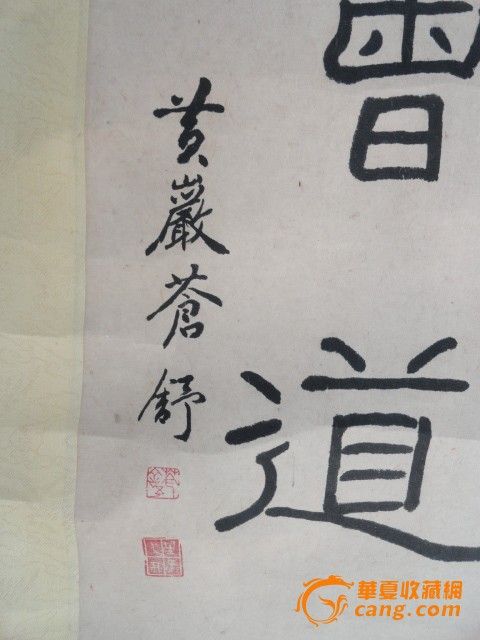 曾道
黄巖蒼舒
華夏收藏網
cang.com